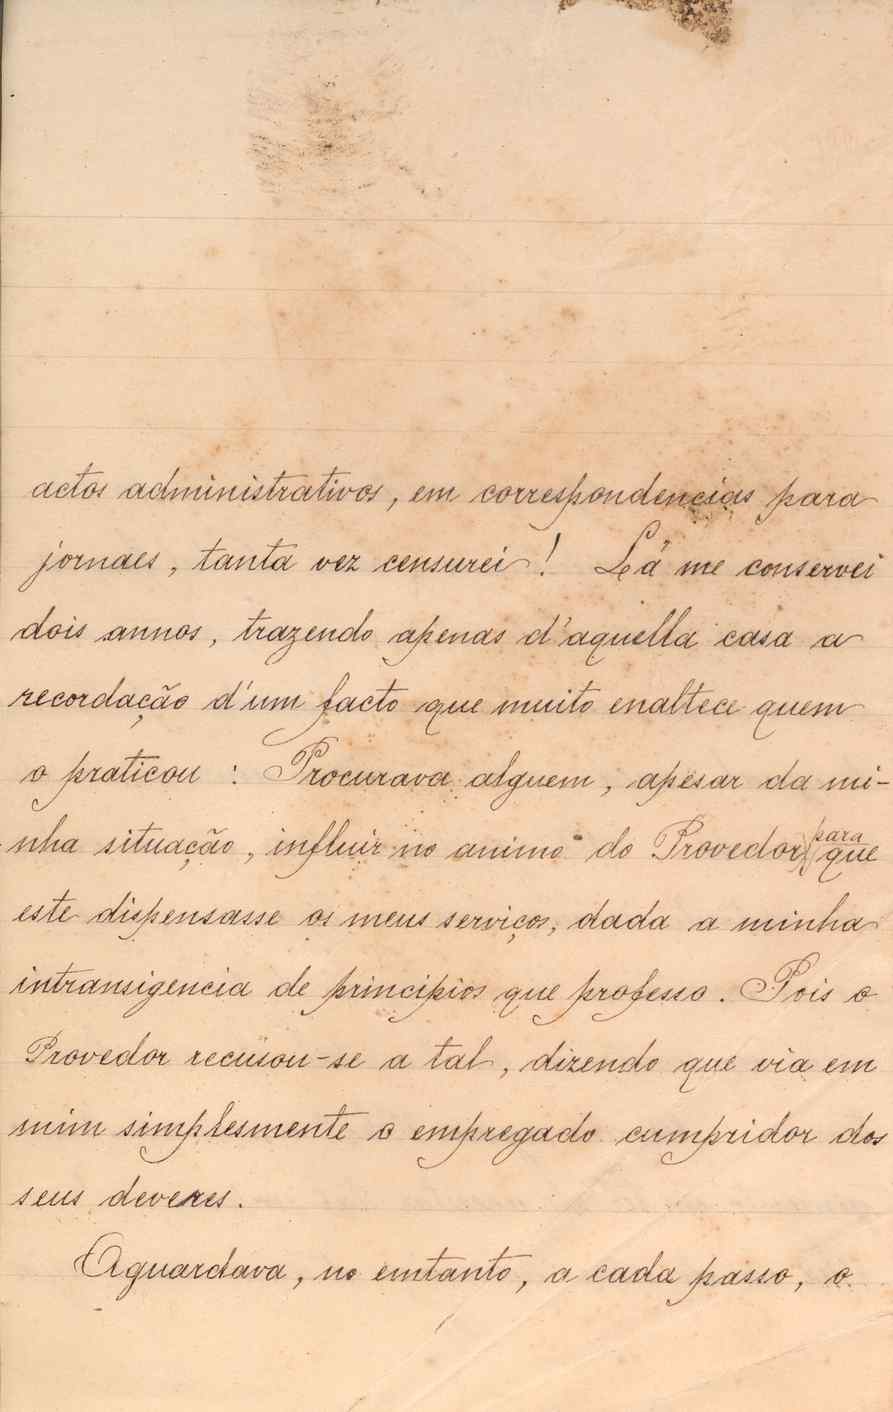 actos administrativos, em correspondencias para
jornaes, tanta vez censurei! Lá me conservei
dois annos, trazendo apenas d'aquella casa a
recordação d'um facto que muito enaltece quem
o praticou: Procurava alguem, apesar da mi-
nha situação, influir no animo do Provedor para que
este dispensasse os meus serviços, dada a minha
intransigencia de principios que professo. Pois o
Provedor recusou-se a tal, dizendo que via em
mim simplesmente o empregado cumpridor dos
seus deveres.
Aguardava, no emtanto, a cada passo, o